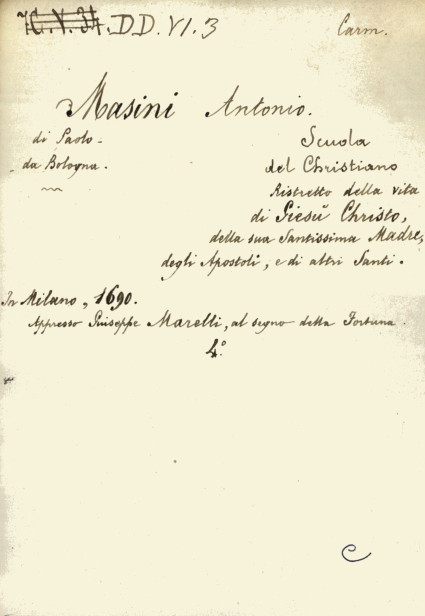 C.V.34. DD.VI.3 Carm.
Masini Antonio.
di Paolo -
da Bologna.
Scuola
del Christiano
Ristretto della vita
di Giesù Christo,
della sua Santissima Madre,
degli Apostoli, e di altri Santi.
In Milano, 1690.
Appresso Giuseppe Marelli, al segno della Fortuna.
4.º
C